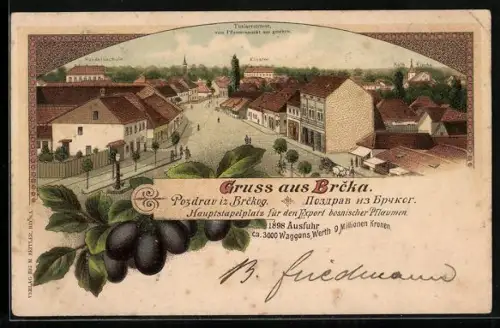 Totalansicht,
vom Pflaumenmarkt aus gesehen.
Handelsschule.
Kloster.
Kirche
Gruss aus Brčka.
Pozdrav iz Brčkog. Поздрав из Брчког.
Hauptstapelplatz für den Export bosnischer Pflaumen.
1898 Ausfuhr
ca. 3000 Waggons, Werth 9 Millionen Kronen.
B. Friedmann
VERLAG BEI